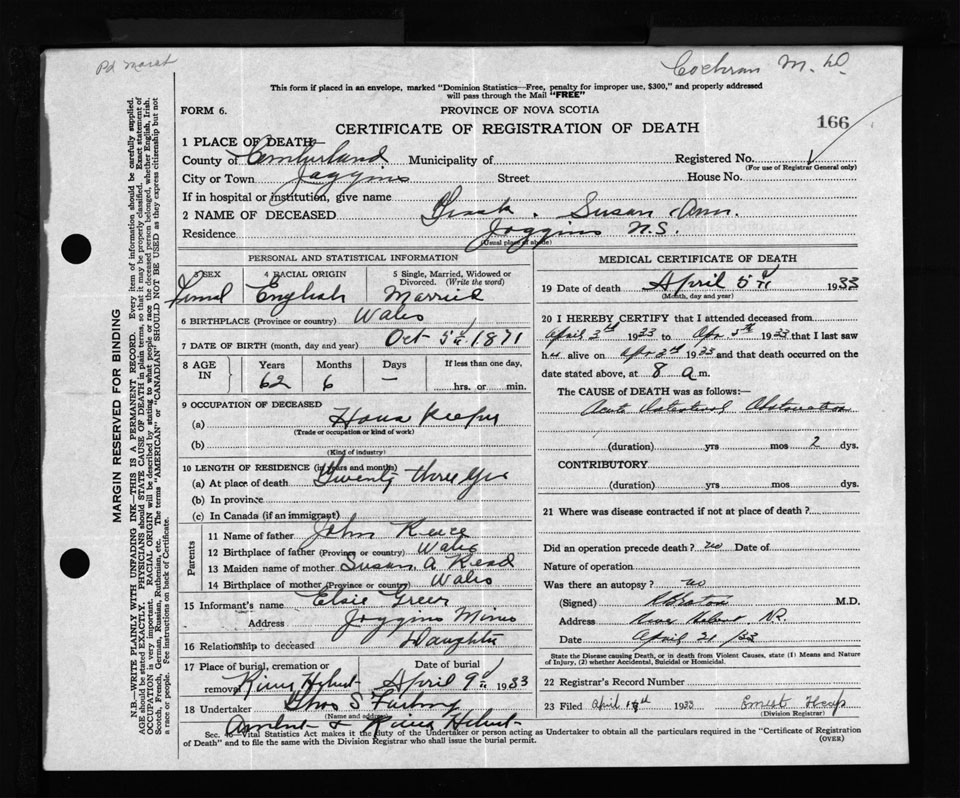 Pd March
Cochran M. D.
This form if placed in an envelope, marked "Dominion Statistics—Free, penalty for improper use, $300," and properly addressed
will pass through the Mail "FREE"
FORM 6. PROVINCE OF NOVA SCOTIA
CERTIFICATE OF REGISTRATION OF DEATH 166
1 PLACE OF DEATH—
County of Cumberland Municipality of Registered No.
(For use of Registrar General only)
City or Town Joggins Street House No.
If in hospital or institution, give name
2 NAME OF DECEASED Susan Ann.
Residence Joggins N.S.
(Usual place of abode)
PERSONAL AND STATISTICAL INFORMATION
3 SEX 4 RACIAL ORIGIN 5 Single, Married, Widowed or
Divorced. (Write the word)
Femal English Married
6 BIRTHPLACE (Province or country) Wales
7 DATE OF BIRTH (month, day and year) Oct 5th 1871
8 AGE IN Years Months Days If less than one day,
62 6 — hrs. or min.
9 OCCUPATION OF DECEASED
(a) House Keeper
(Trade or occupation or kind of work)
(b)
(Kind of industry)
10 LENGTH OF RESIDENCE (in years and months)
(a) At place of death Twenty three Yrs
(b) In province
(c) In Canada (if an immigrant)
Parents
11 Name of father John
12 Birthplace of father (Province or country) Wales
13 Maiden name of mother Susan A Read
14 Birthplace of mother (Province or country) Wales
15 Informant's name Elsie Green
Address Joggins Mines
16 Relationship to deceased Daughter
17 Place of burial, cremation or Date of burial
removal River Hebert April 9th 1933
18 Undertaker Thos S
(Name and address)
Amherst & River Hebert
MEDICAL CERTIFICATE OF DEATH
19 Date of death April 5th 1933
(Month, day and year)
20 I HEREBY CERTIFY that I attended deceased from
April 3rd 1933 to Apr 5th 1933 that I last saw
her alive on Apr 3rd 1933 and that death occurred on the
date stated above, at 8 a m.
The CAUSE OF DEATH was as follows:—
Acute Intestinal Obstruction
(duration) yrs mos 2 dys.
CONTRIBUTORY
(duration) yrs mos dys.
21 Where was disease contracted if not at place of death?
Did an operation precede death? no Date of
Nature of operation
Was there an autopsy? no
(Signed) M.D.
Address River Hebert, N.S.
Date April 21/33
State the Disease causing Death, or in death from Violent Causes, state (1) Means and Nature
of Injury, (2) whether Accidental, Suicidal or Homicidal.
22 Registrar's Record Number
23 Filed April 1933 Ernest Heap
(Division Registrar)
Sec. Vital Statistics Act makes it the duty of the Undertaker or person acting as Undertaker to obtain all the particulars required in the "Certificate of Registration
of Death" and to file the same with the Division Registrar who shall issue the burial permit.
(OVER)
MARGIN RESERVED FOR BINDING
N.B.—WRITE PLAINLY WITH UNFADING INK—THIS IS A PERMANENT RECORD. Every item of information should be carefully supplied.
AGE should be stated EXACTLY. PHYSICIANS should STATE CAUSE OF DEATH in plain terms, so that it may be properly classified. Exact statement of
OCCUPATION is very important. RACIAL ORIGIN will be described by stating to what people or race the deceased person belonged, whether English, Irish,
Scotch, French, German, Russian, Ruthenian, etc. The terms "AMERICAN" or "CANADIAN" SHOULD NOT BE USED as they express citizenship but not
a race or people. Fee instructions on back of Certificate.